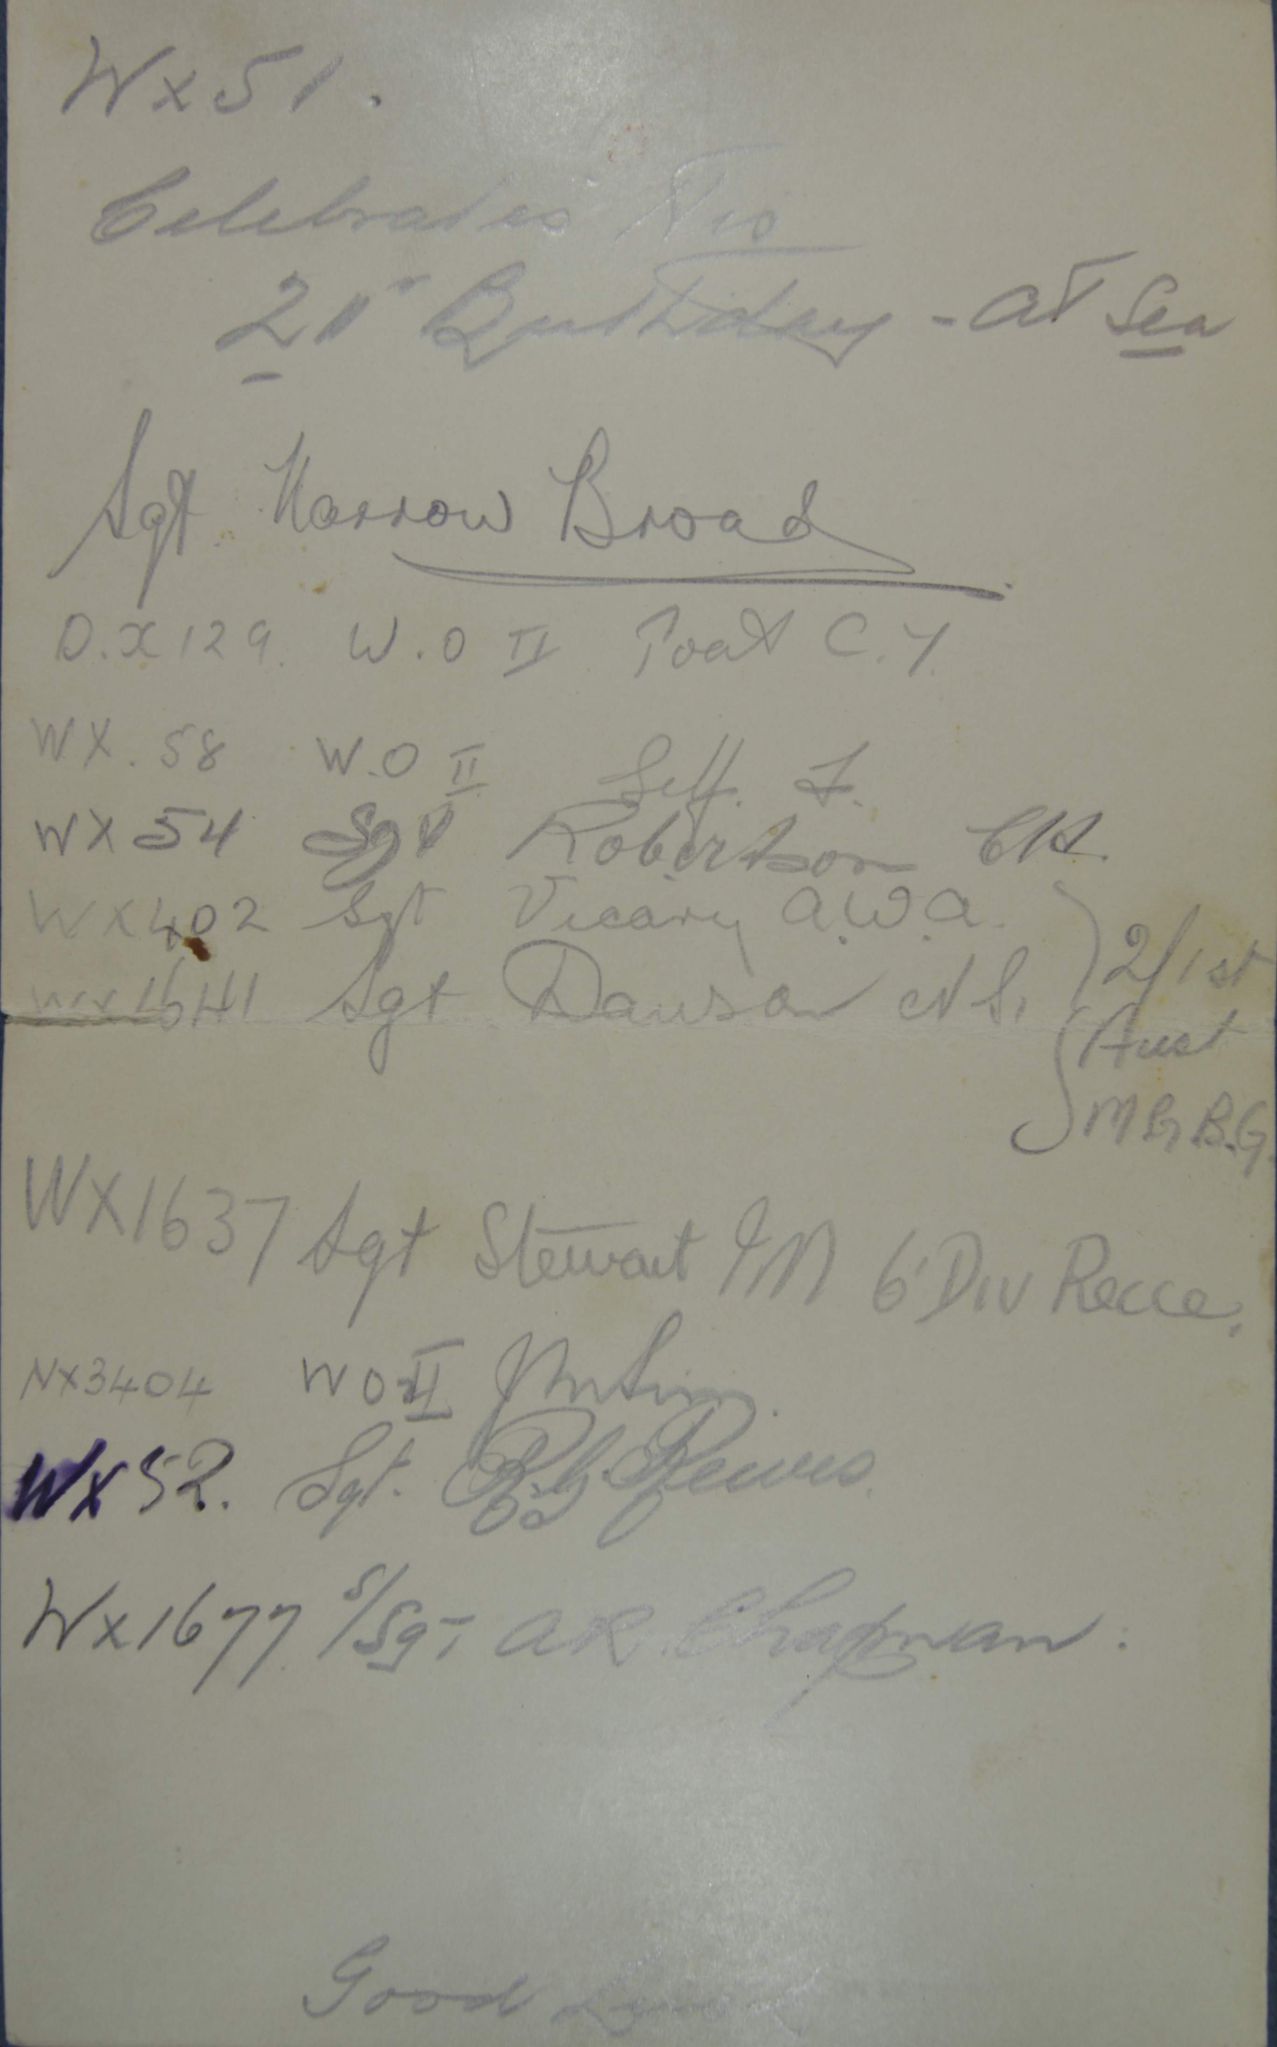 Wx51.
Celebrates His
21st Birthday - at Sea
Sgt Narrow Broad
D.X129. W.O II Toat C.Y.
WX.58 W.O II Self. F.
WX54 Sgt Robertson
WX402 Sgt Vicary A.W.A.
WX1641 Sgt Dawson N S.
2/1st
Aust
M G B.G.
WX1637 Sgt Stewart I M 6 Div Recce.
NX3404 WO II
Wx52. Sgt.
Wx1677 S/Sgt A R Chapman.
Good Luck